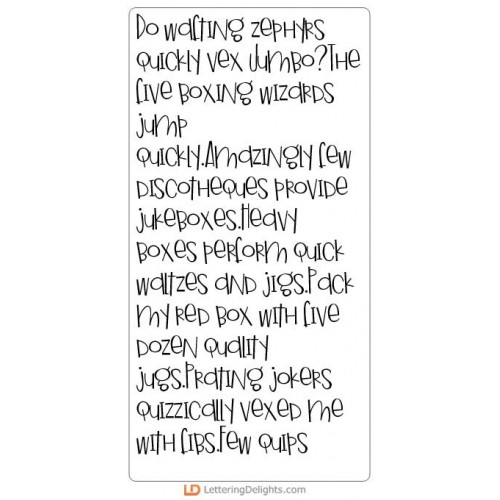 Do wafting zephyrs
quickly vex Jumbo?The
five boxing wizards
jump
quickly.Amazingly few
discotheques provide
jukeboxes.Heavy
boxes perform quick
waltzes and jigs.Pack
my red box with five
dozen quality
jugs.Prating jokers
quizzically vexed me
with fibs.Few quips
LD LetteringDelights.com